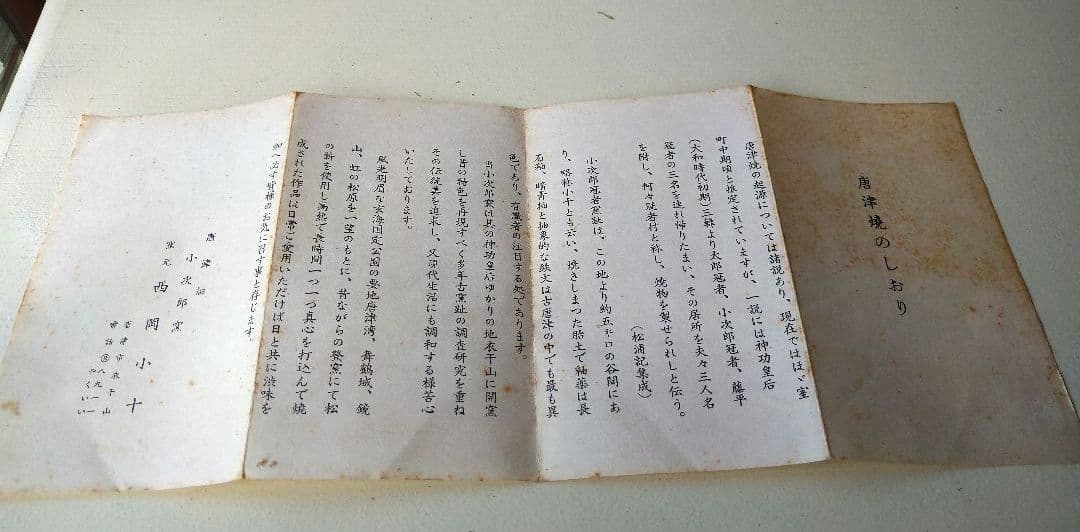 唐津焼のしおり
唐津焼の起源については諸説あり、現在ではほゞ室
町中期頃と推定されていますが、一説には神功皇后
(大和時代初期)三韓より太郎冠者、小次郎冠者、藤平
冠者の三名を連れ帰りたまい、その居所を夫々三人名
を附し、何々冠者村と称し、焼物を製せられしと伝う。
(松浦記集成)
小次郎冠者窯趾は、この地より約五キロの谷間にあ
り、略称小十とも云い、焼きしまった胎土て釉薬は長
石釉、暗青釉と抽象的な絵文は古唐津の中でも最も異
色であり、有識者の注目する処であります。
当小次郎窯は其の神功皇后ゆかりの地衣干山に開窯
し昔の特色を再現すべく多年古窯趾の調査研究を重ね
その伝統美を追求し、又現代生活にも調和する様苦心
いたしております。
風光明眉な玄海国定公園の要地唐津湾、舞鶴城、鏡
山、虹の松原を一望のもとに、昔ながらの登窯にて松
の薪を使用し高熱で長時間一つ一つ真心を打込んで焼
成された作品は日常ご愛用いただけば日と共に渋味を
加へ必ず皆様のお気に召す事と存じます。
唐津
小次郎窯
窯元 西岡小十
唐津市衣干山
電話